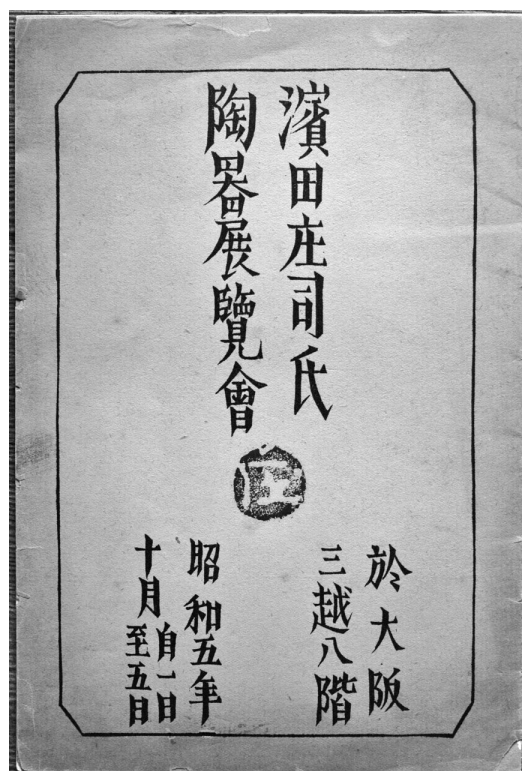 濱田庄司氏
陶器展覽會
庄
於大阪
三越八階
昭和五年
十月自一日
至五日